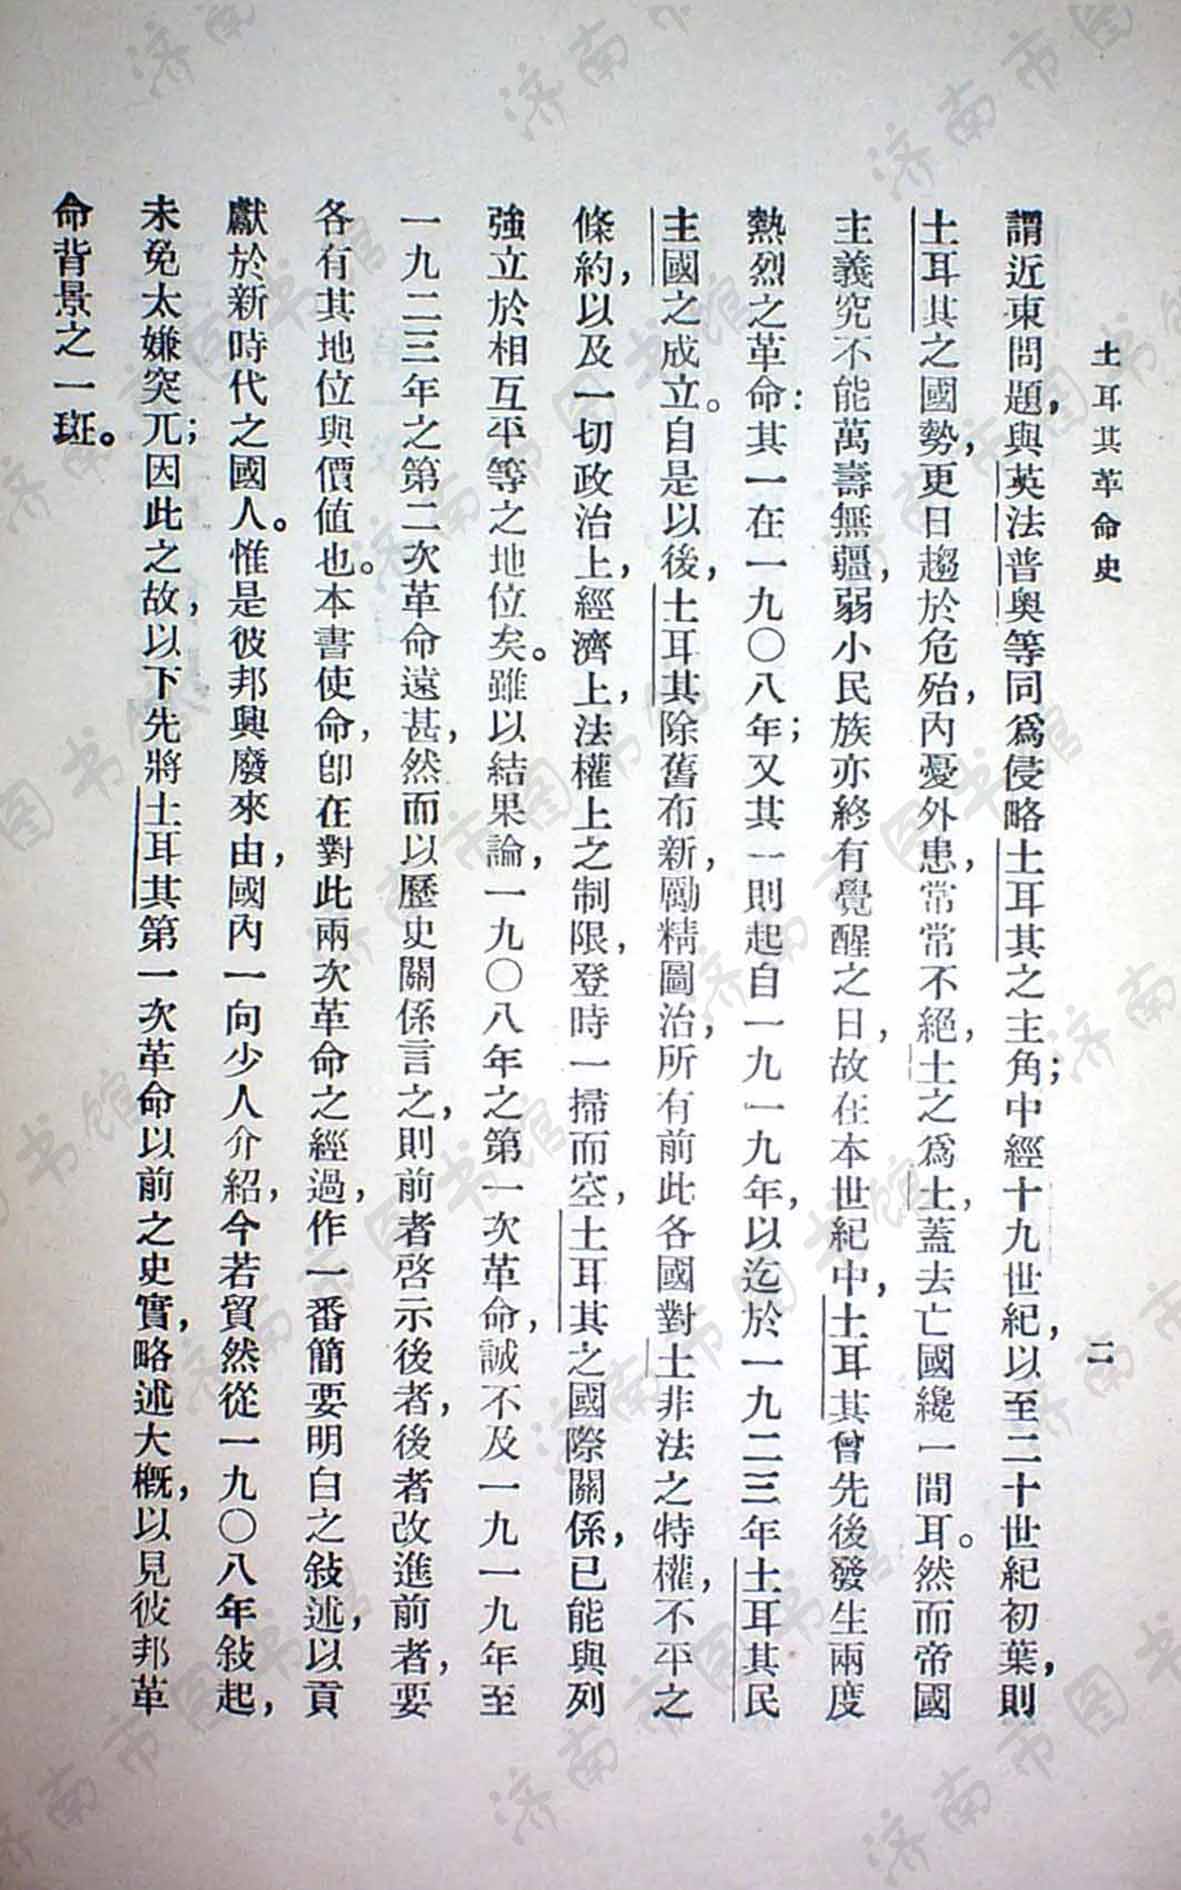 土耳其革命史
二
謂近東問題，與英法普奧等同爲侵略土耳其之主角；中經十九世紀，以至二十世紀初葉，則
土耳其之國勢，更日趨於危殆，內憂外患，常常不絕，土之爲土，蓋去亡國纔一間耳。然而帝國
主義究不能萬壽無疆，弱小民族亦終有覺醒之日，故在本世紀中，土耳其曾先後發生兩度
熱烈之革命：其一在一九〇八年；又其一則起自一九一九年，以迄於一九二三年土耳其民
主國之成立。自是以後，土耳其除舊布新，勵精圖治，所有前此各國對土非法之特權，不平之
條約，以及一切政治上，經濟上，法權上之制限，登時一掃而空，土耳其之國際關係，已能與列
強立於相互平等之地位矣。雖以結果論，一九〇八年之第一次革命，誠不及一九一九年至
一九二三年之第二次革命遠甚，然而以歷史關係言之，則前者啓示後者，後者改進前者，要
各有其地位與價值也。本書使命，卽在對此兩次革命之經過，作一番簡要明白之敍述，以貢
獻於新時代之國人。惟是彼邦興廢來由，國內一向少人介紹，今若貿然從一九〇八年敍起，
未免太嫌突兀；因此之故，以下先將土耳其第一次革命以前之史實，略述大概，以見彼邦革
命背景之一斑。
济南市图书馆